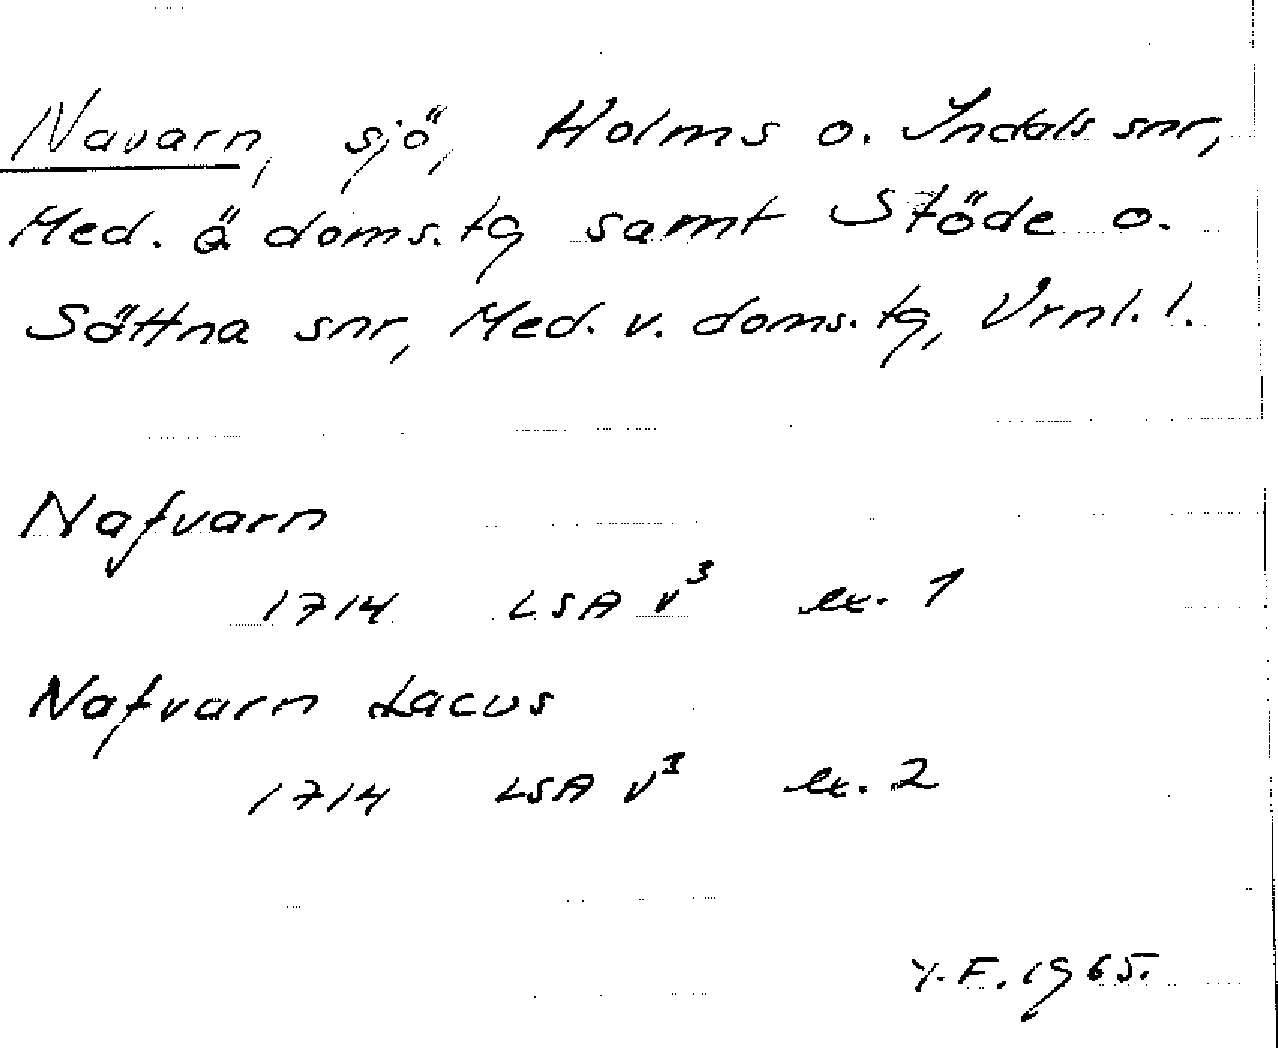 Navarn, sjö, Holms o. Indals snr,
Med. ö. doms.tg samt Stöde o.
Sättna snr, Med. v. doms. tg, Vrnl. l.
Nafvarn
1714 LSA v³ ex. 1
Nafvarn Lacus
1714 LSA v³ ex. 2
Y. F. 1965.